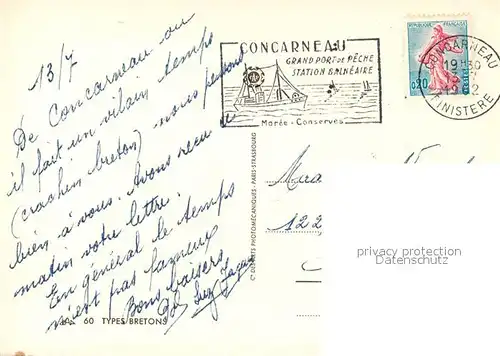 13/7
De Concarneau ou
il fait un vilain temps
(crachin breton) nous pensons
bien à vous. Avons reçu ce
matin votre lettre.
En général le temps
n'est pas fameux
Bons baisers
60 TYPES BRETONS
CONCARNEAU
GRAND PORT DE PÊCHE
STATION BALNÉAIRE
Marée - Conserves
RÉPUBLIQUE FRANÇAISE
0,20
CONCARNEAU
19H30
FINISTERE
PHOTOMÉCANIQUES - PARIS-STRASBOURG
122
privacy protection
Datenschutz